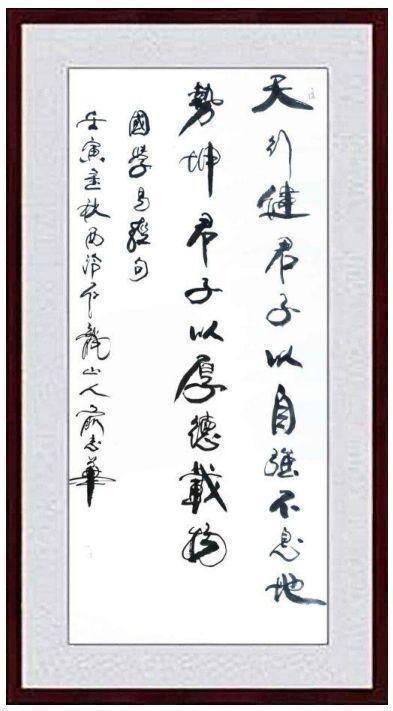 天行健君子以自強不息地
勢坤君子以厚德載物
國學易經句
壬寅孟秋西泠印龍山人俞志華